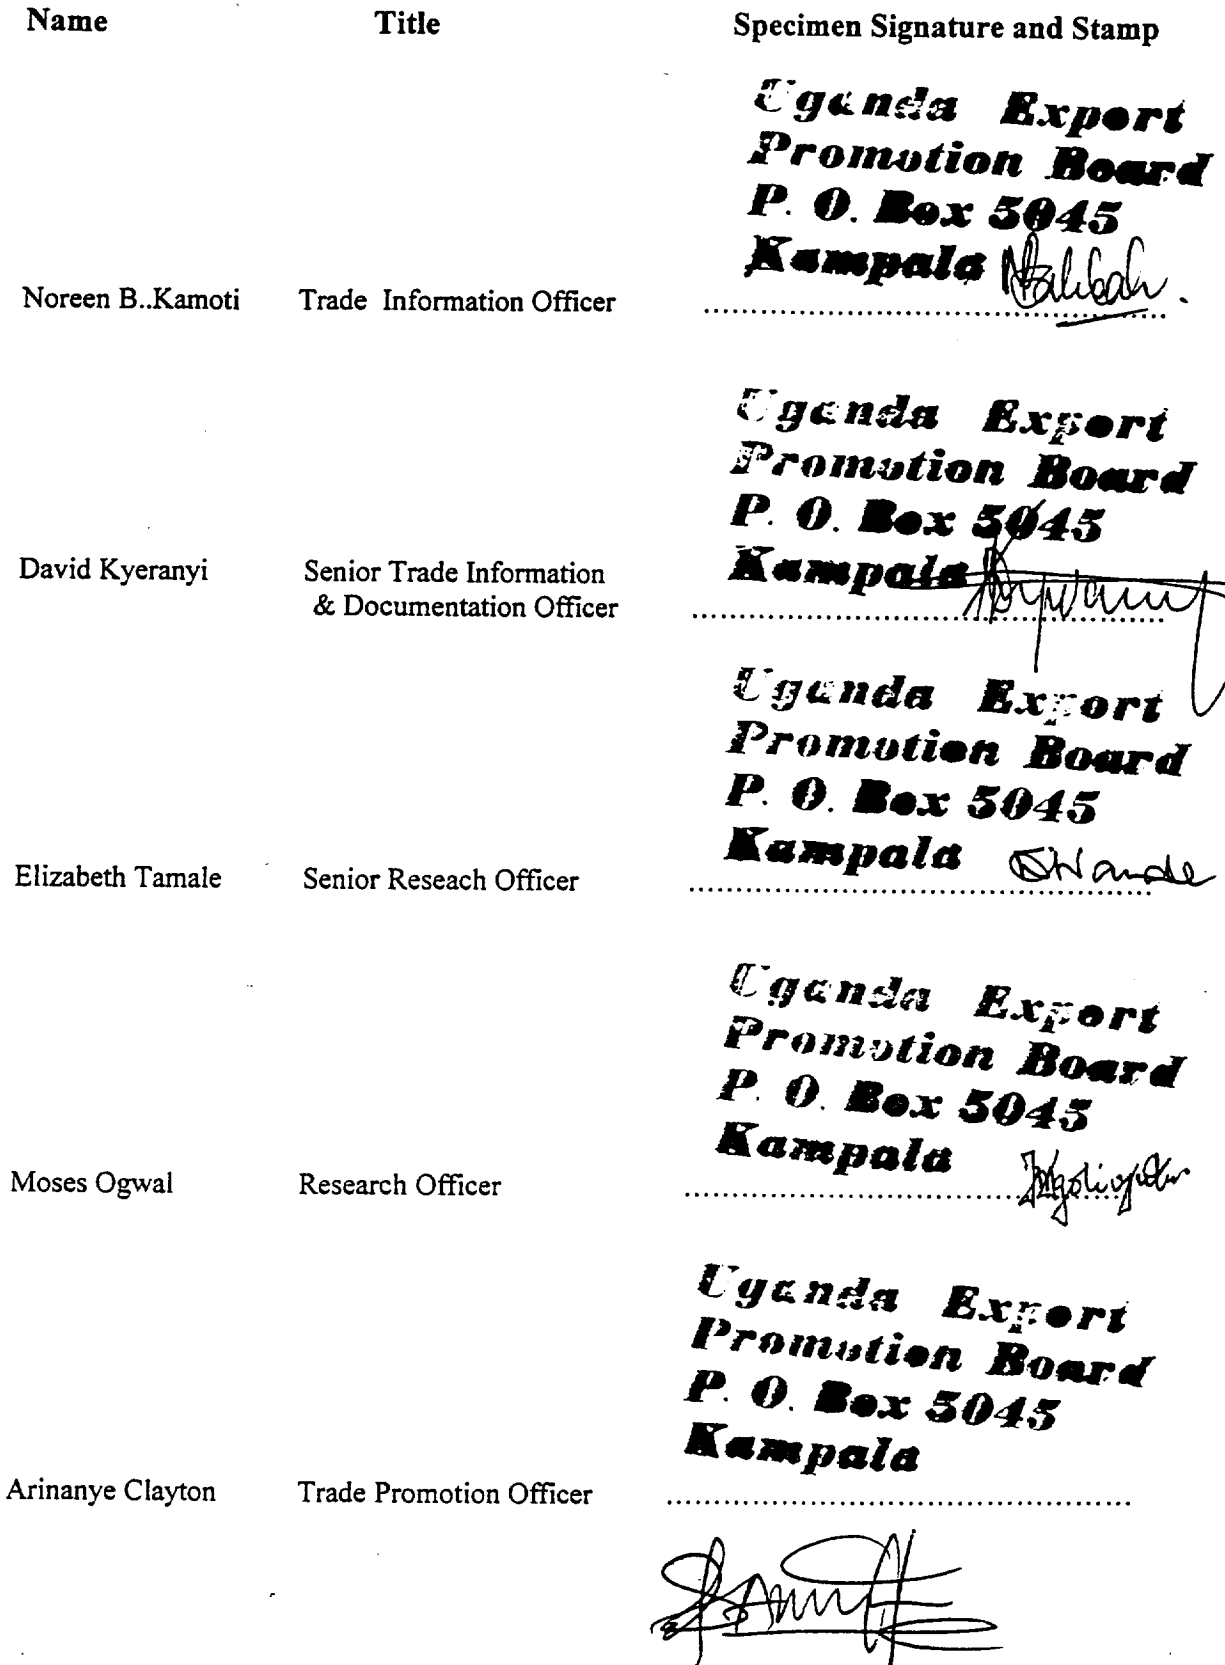 Name Title Specimen Signature and Stamp
Uganda Export
Promotion Board
P. O. Box 5045
Kampala
Noreen B..Kamoti Trade Information Officer
Uganda Export
Promotion Board
P. O. Box 5045
Kampala
David Kyeranyi Senior Trade Information
& Documentation Officer
Uganda Export
Promotion Board
P. O. Box 5045
Kampala
Elizabeth Tamale Senior Reseach Officer
Uganda Export
Promotion Board
P. O. Box 5045
Kampala
Moses Ogwal Research Officer
Uganda Export
Promotion Board
P. O. Box 5045
Kampala
Arinanye Clayton Trade Promotion Officer